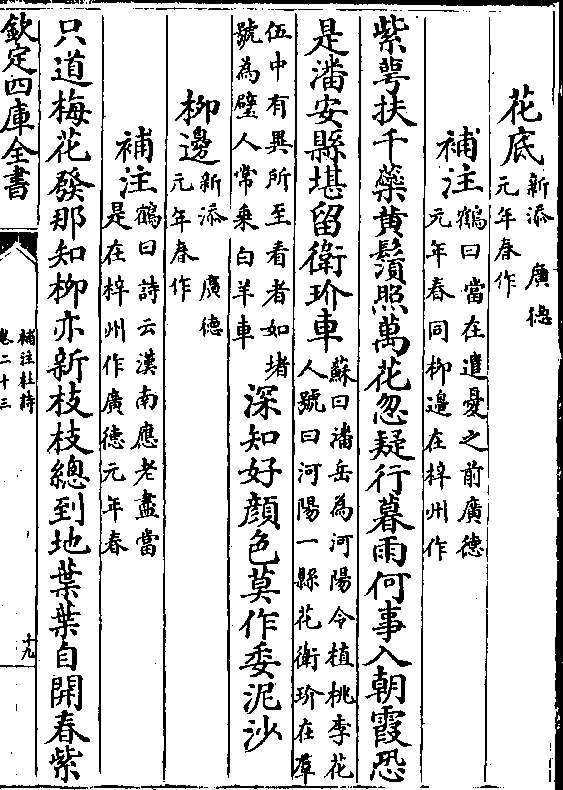 花底新添　廣德元年春作
補注鶴曰當在遣憂之前廣德元年春同柳邊在梓州作
紫萼扶千蘂黄鬚照萬花忽疑行暮雨何事入朝霞恐
是潘安縣堪留衛玠車蘇曰潘岳為河陽令植桃李花人號曰河陽一縣花衛玠在羣
伍中有異所至看者如堵號為璧人常乘白羊車深知好顔色莫作委泥沙
柳邊新添　廣德元年春作
補注鶴曰詩云漢南應老盡當是在梓州作廣德元年春
只道梅花發那知柳亦新枝枝總到地葉葉自開春紫
欽定四庫全書
補注杜詩
卷二十三
十九